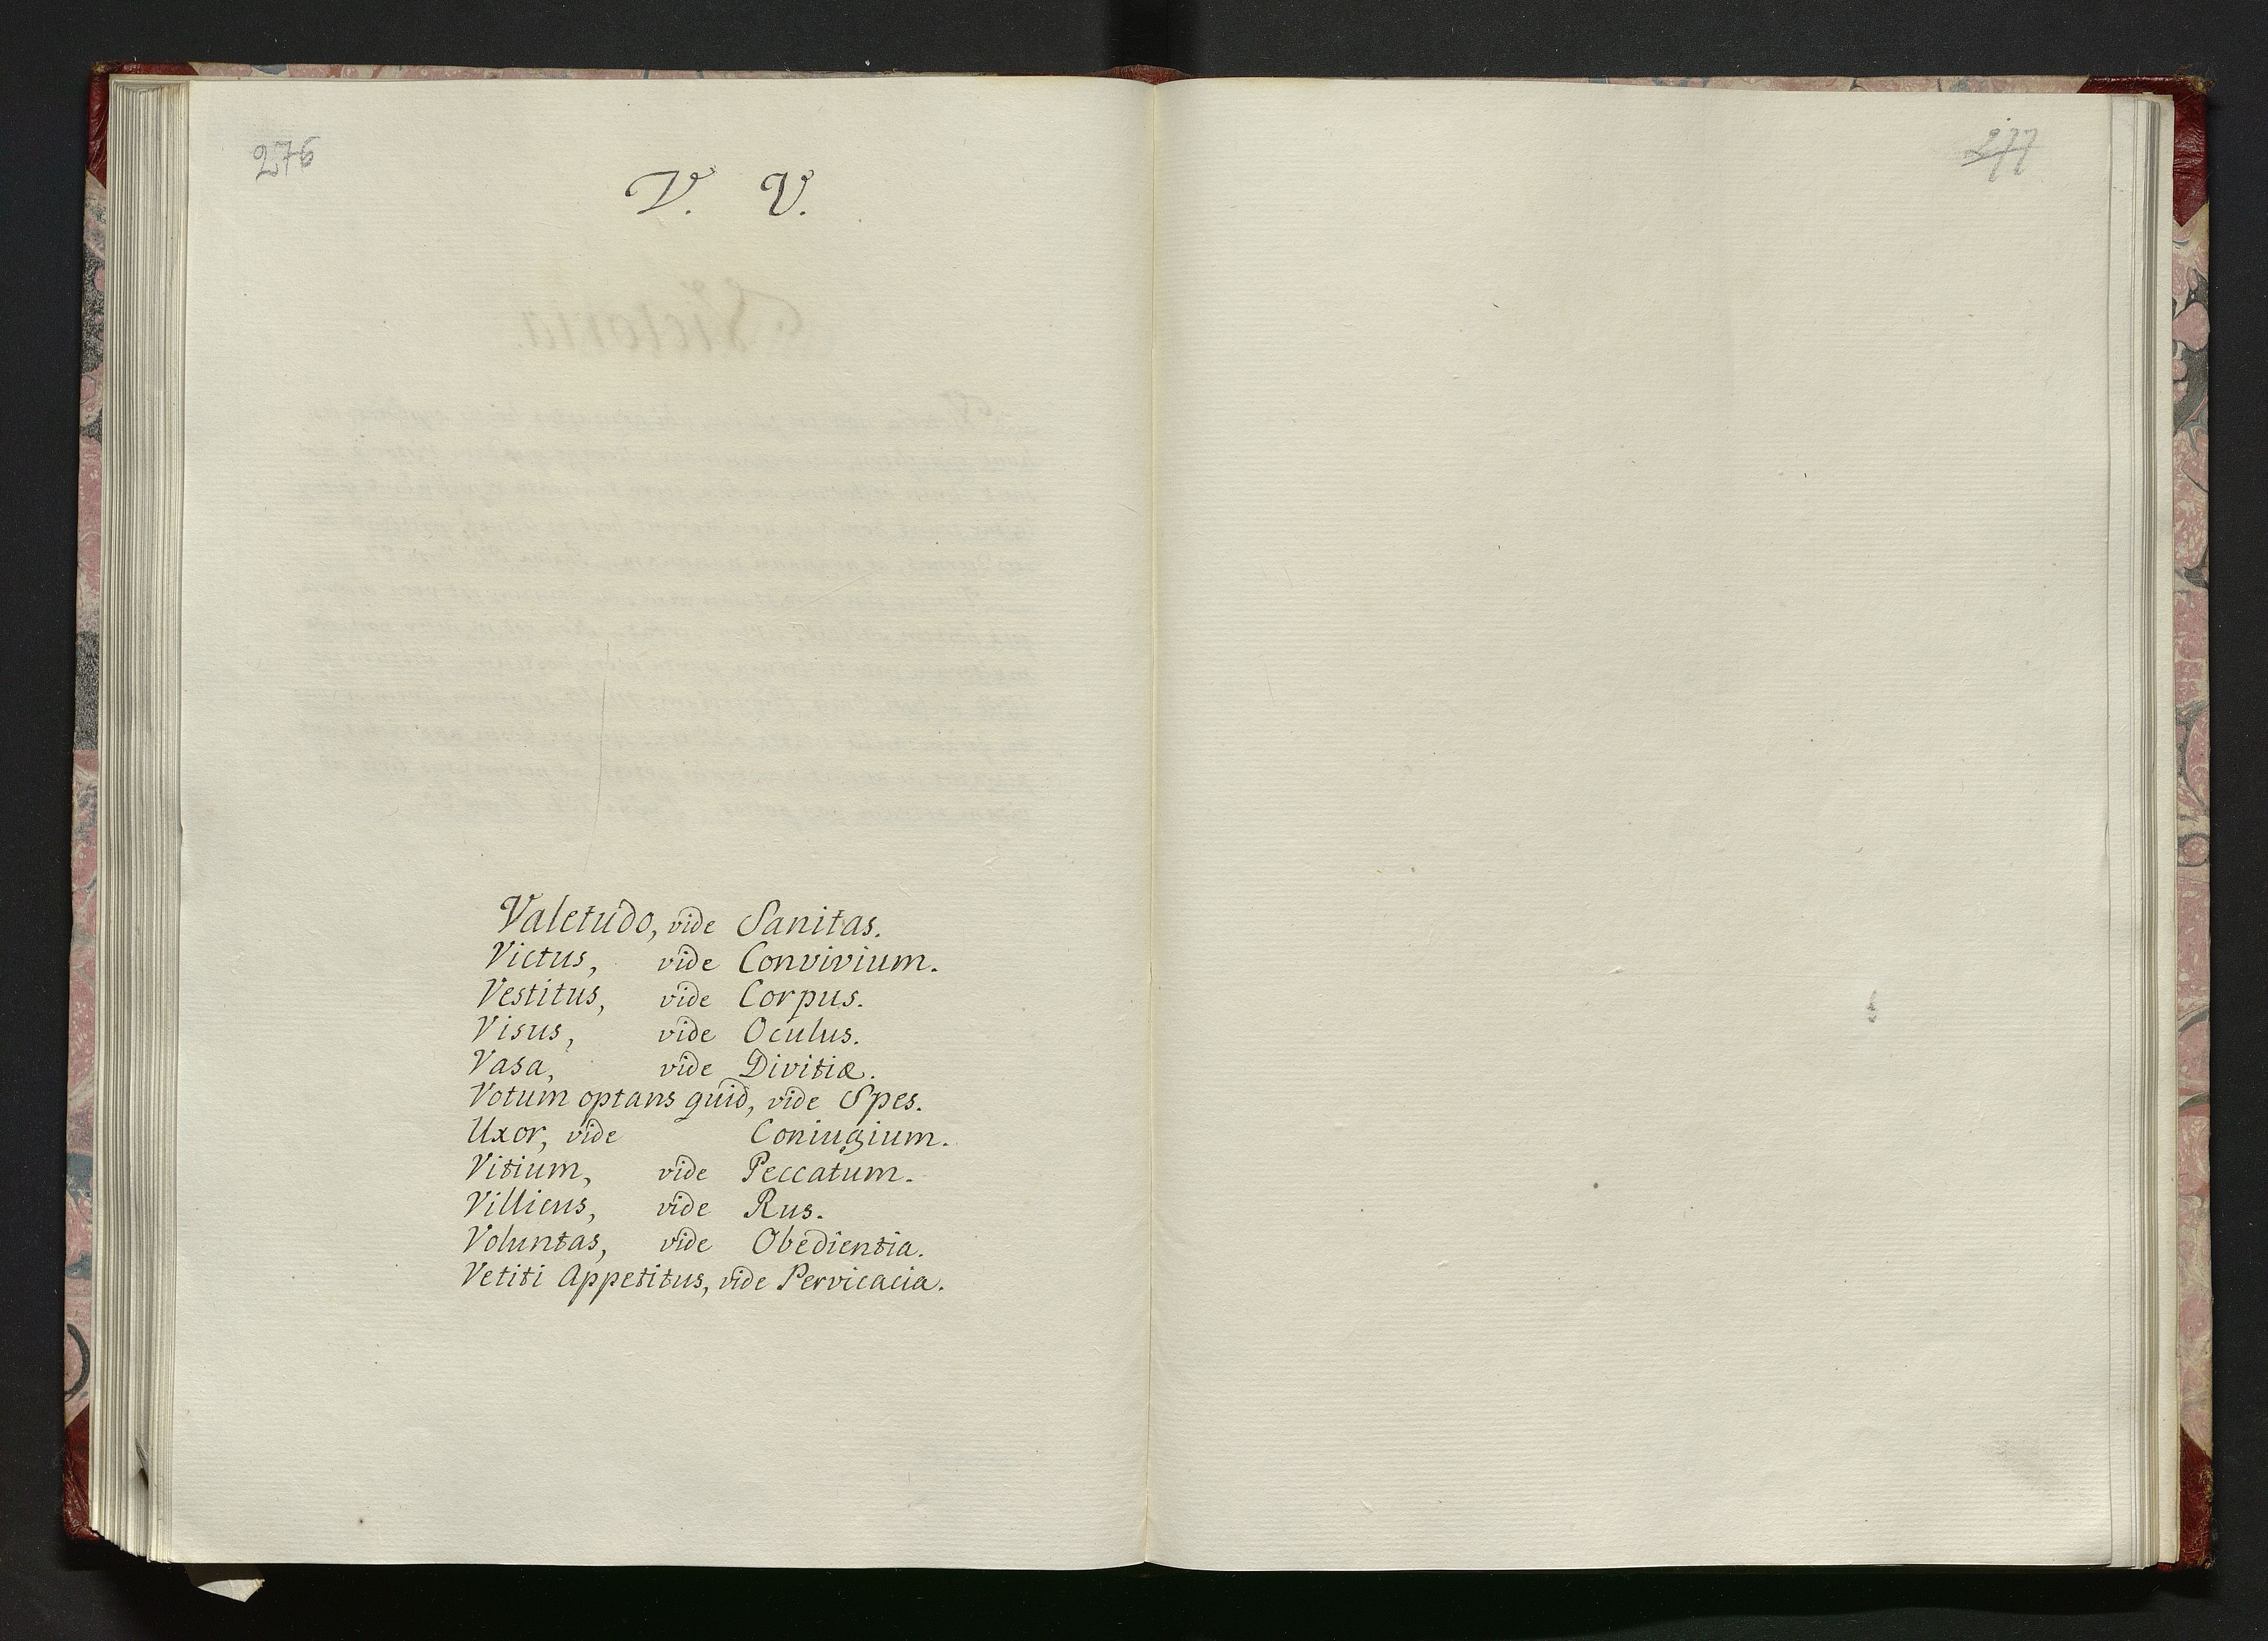 276
V. V.
Valetudo, vide Sanitas.
Victus, vide Convivium.
Vestitus, vide Corpus.
Visus, vide Oculus.
Vasa, vide Divitiæ.
Votum optans quid, vide Spes.
Uxor, vide Coniugium.
Vitium, vide Peccatum.
Villicus, vide Rus.
Voluntas, vide Obedientia.
Vetiti Appetitus, vide Pervicacia.
277